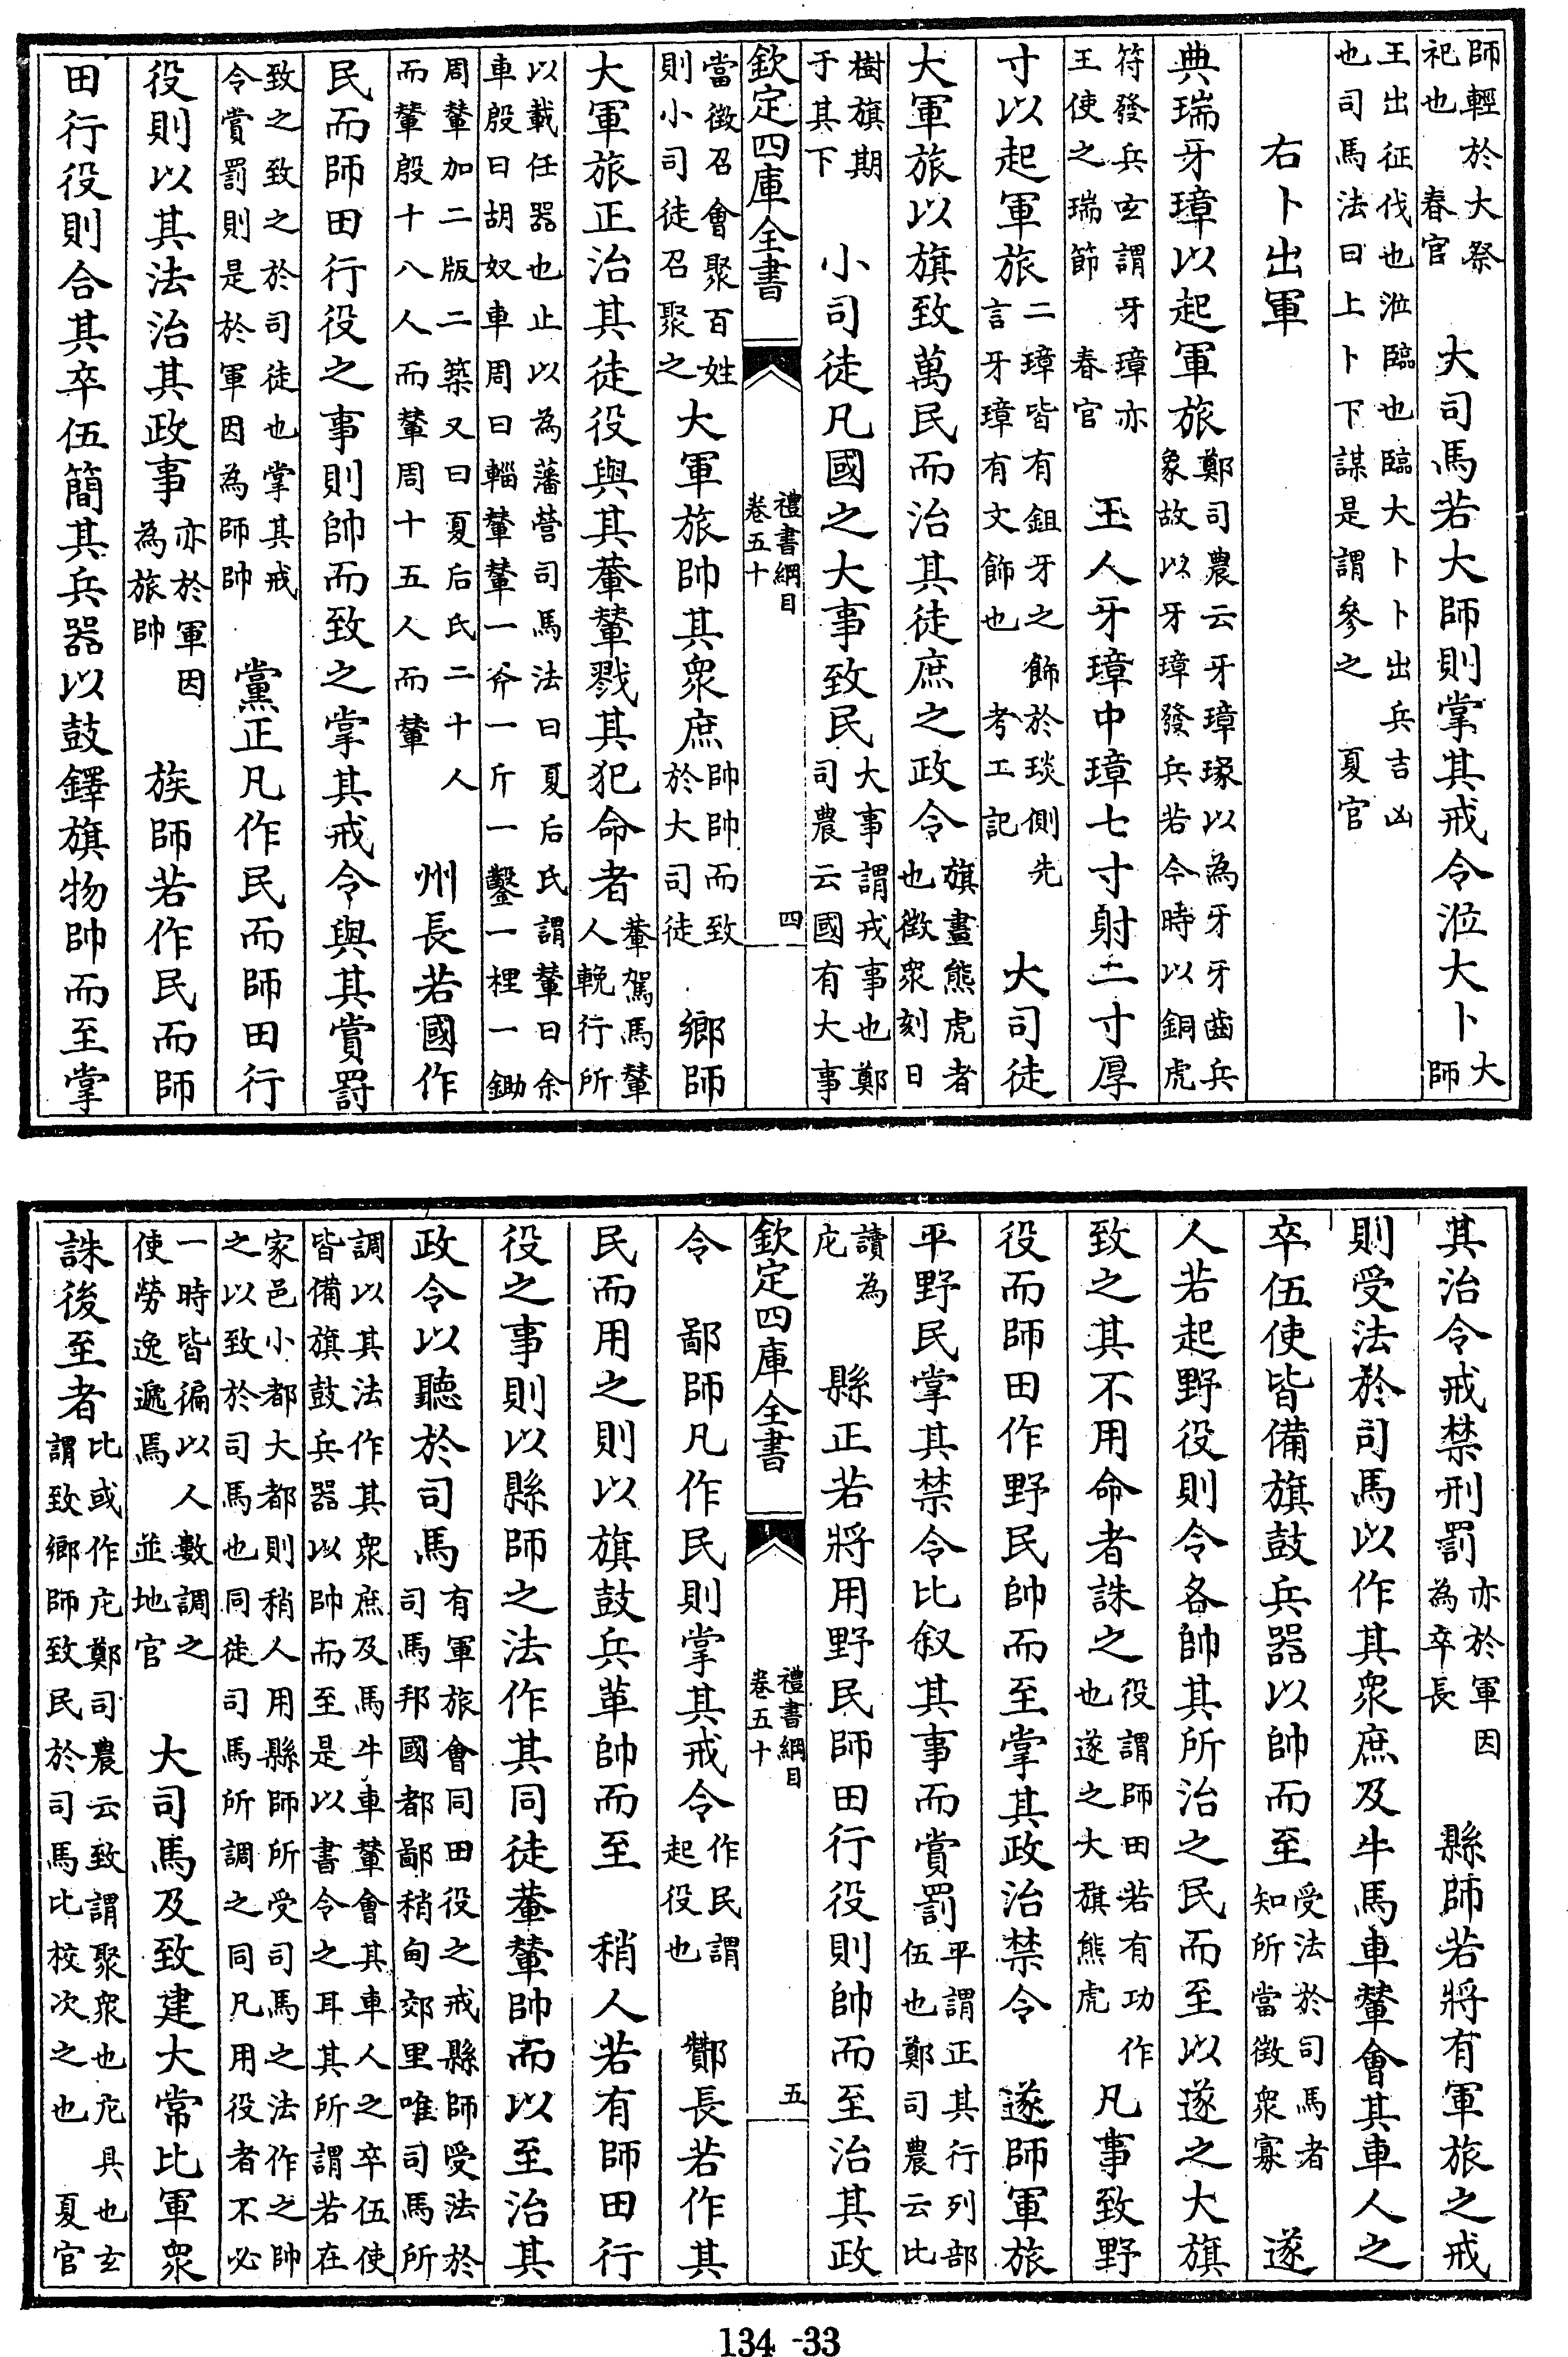 師輕於大祭祀也 春官 大司馬若大師則掌其戒令涖大卜大師
王出征伐也涖臨也臨大卜卜出兵吉凶也司馬法曰上卜下謀是謂參之 夏官
右卜出軍
典瑞牙璋以起軍旅鄭司農云牙璋瑑以為牙牙齒兵象故以牙璋發兵若今時以銅虎
符發兵玄謂牙璋亦王使之瑞節 春官 玉人牙璋中璋七寸射二寸厚
寸以起軍旅二璋皆有鉏牙之飾於琰側先言牙璋有文飾也 考工記 大司徒
大軍旅以旗致萬民而治其徒庶之政令旗畫熊虎者也徵衆刻日
樹旗期于其下 小司徒凡國之大事致民大事謂戎事也鄭司農云國有大事
欽定四庫全書 禮書綱目 卷五十 四
當徵召會聚百姓則小司徒召聚之 大軍旅帥其衆庶帥帥而致於大司徒 鄉師
大軍旅正治其徒役與其輂輦戮其犯命者輂駕馬輦人輓行所
以載任器也止以為藩營司馬法曰夏后氏謂輦曰余車殷曰胡奴車周曰輜輦輦一斧一斤一鑿一梩一鋤
周輦加二版二築又曰夏后氏二十人而輦殷十八人而輦周十五人而輦 州長若國作
民而師田行役之事則帥而致之掌其戒令與其賞罰
致之致之於司徒也掌其戒令賞罰則是於軍因為師帥 黨正凡作民而師田行
役則以其法治其政事亦於軍因為旅帥 族師若作民而師
田行役則合其卒伍簡其兵器以鼓鐸旗物帥而至掌
其治令戒禁刑罰亦於軍因為卒長 縣師若將有軍旅之戒
則受法於司馬以作其衆庶及牛馬車輦會其車人之
卒伍使皆備旗鼓兵器以帥而至受法於司馬者知所當徵衆寡 遂
人若起野役則令各帥其所治之民而至以遂之大旗
致之其不用命者誅之役謂師田若有功作也遂之大旗熊虎 凡事致野
役而師田作野民帥而至掌其政治禁令 遂師軍旅
平野民掌其禁令比叙其事而賞罰平謂正其行列部伍也鄭司農云比
讀為庀 縣正若將用野民師田行役則帥而至治其政
欽定四庫全書 禮書綱目 卷五十 五
令 鄙師凡作民則掌其戒令作民謂起役也 酇長若作其
民而用之則以旗鼓兵革帥而至 稍人若有師田行
役之事則以縣師之法作其同徒輂輦帥而以至治其
政令以聽於司馬有軍旅會同田役之戒縣師受法於司馬邦國都鄙稍甸郊里唯司馬所
調以其法作其衆庶及馬牛車輦會其車人之卒伍使皆備旗鼓兵器以帥而至是以書令之耳其所謂若在
家邑小都大都則稍人用縣師所受司馬之法作之帥之以致於司馬也同徒司馬所調之同凡用役者不必
一時皆徧以人數調之使勞逸遞焉 並地官 大司馬及致建大常比軍衆
誅後至者比或作庀鄭司農云致謂聚衆也庀具也玄謂致鄉師致民於司馬比校次之也 夏官
134-33